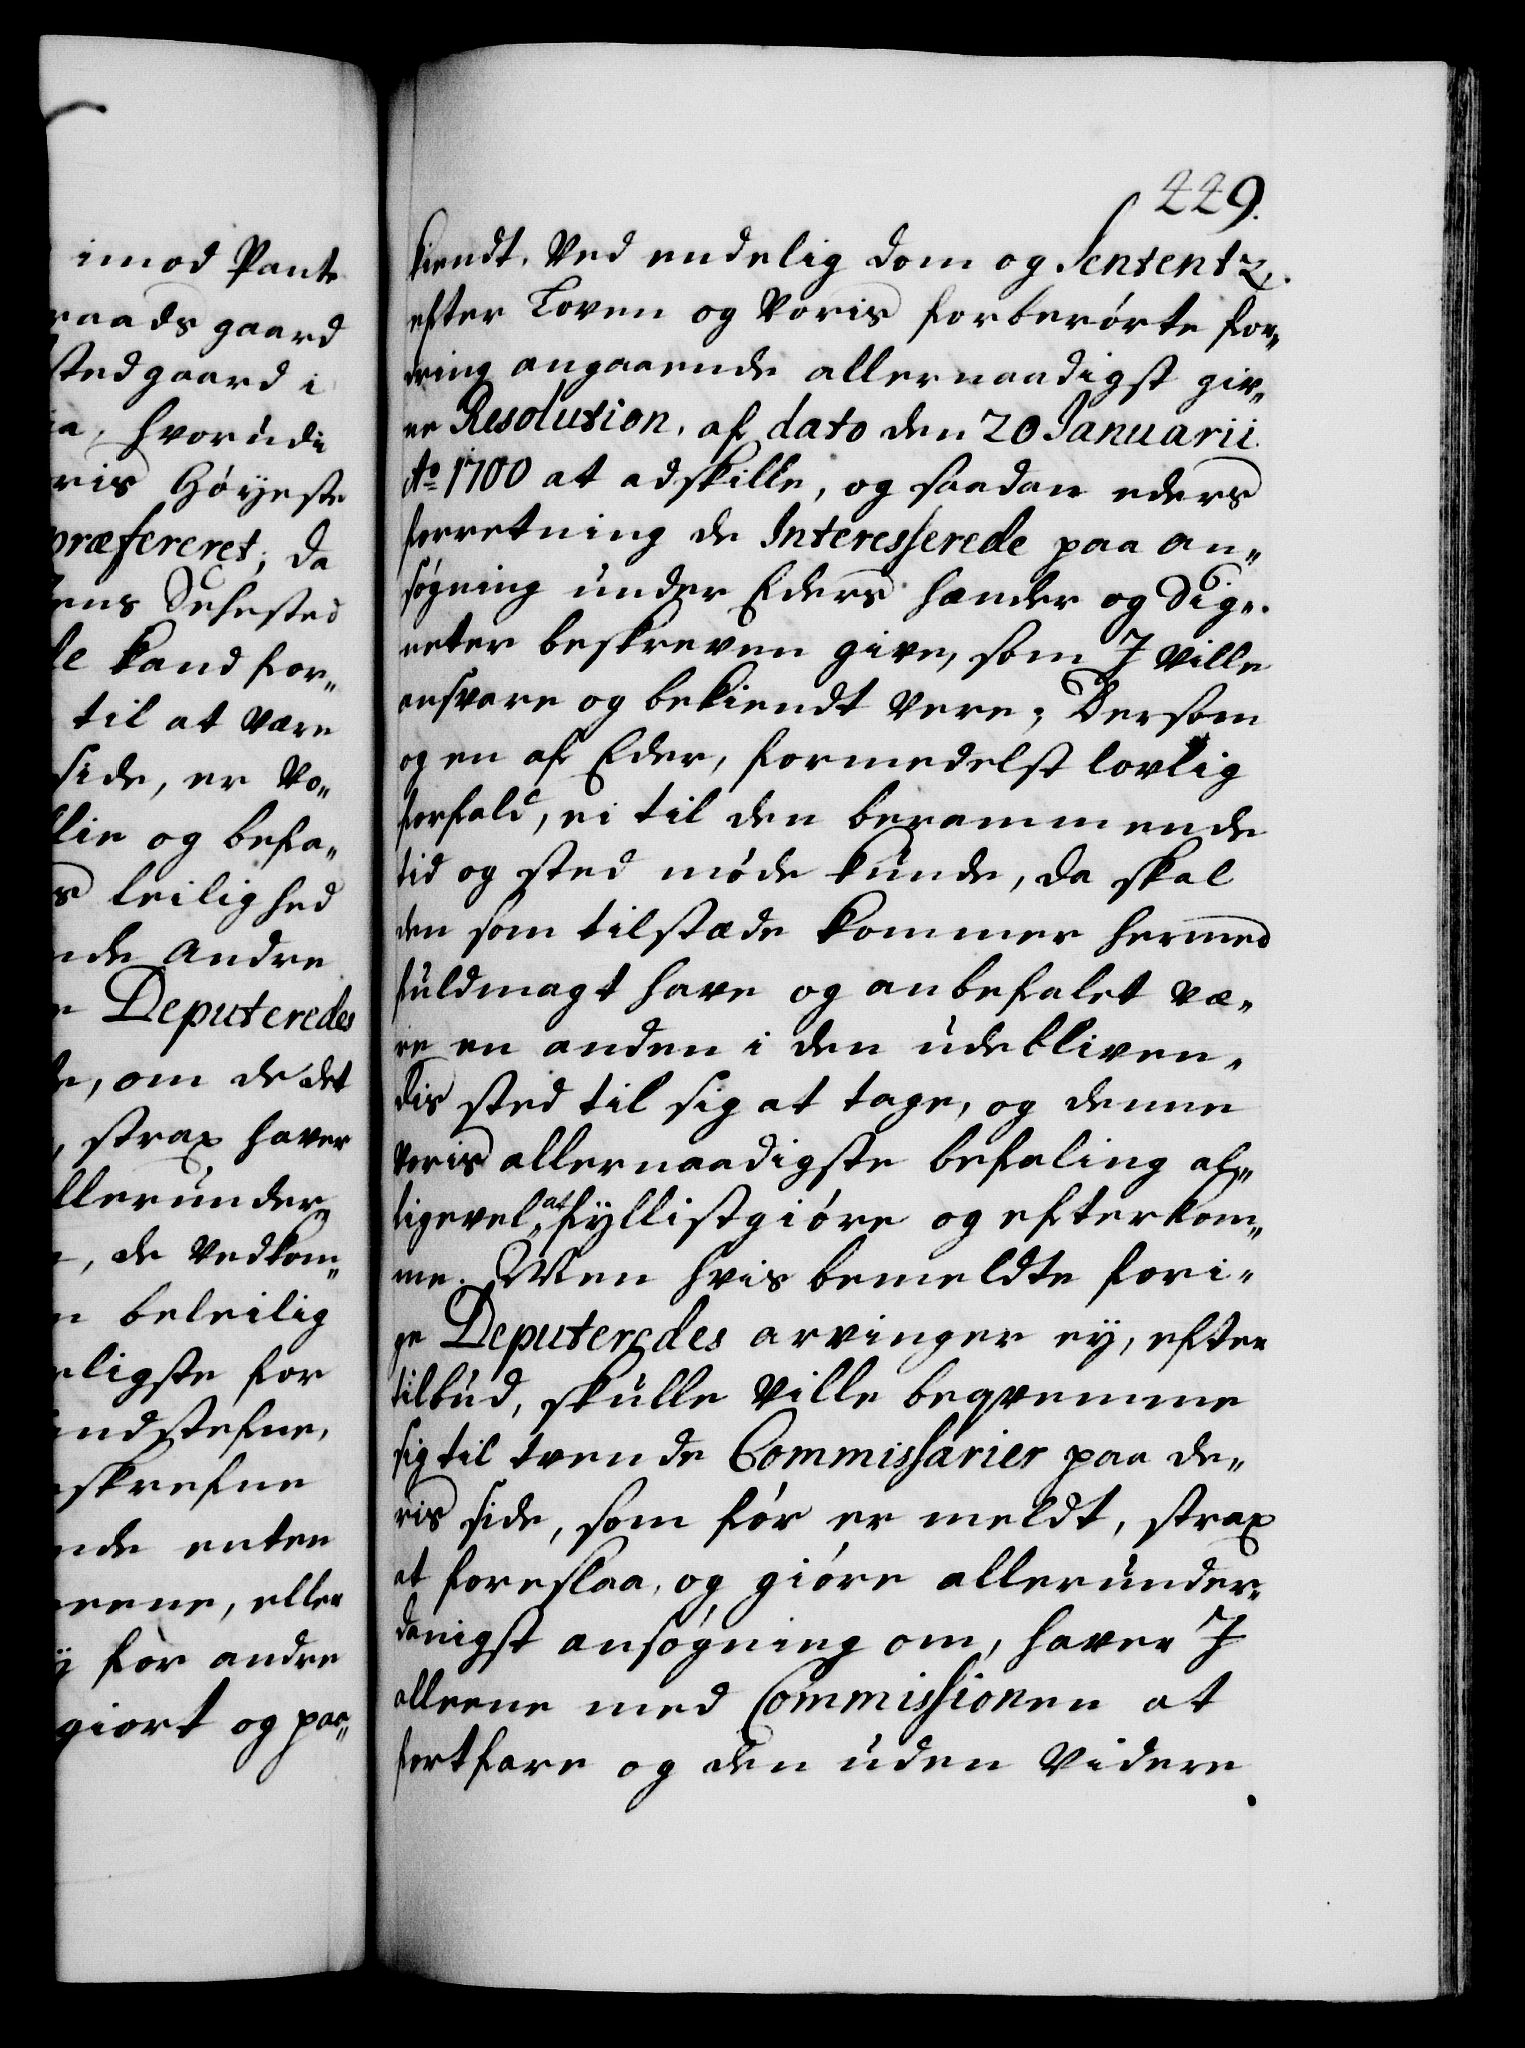 imod Pante
raads gaard
stedgaard i
ia, hvorudi
vris Høyeste
præfereret; da
Jens Sehested
le kand for„
til at være
side, er Vo„
llie og befa„
s leilighed
nde Andre
e Deputeredes
de, om de det
, strax haver
llerunder„
, de Vedkom„
n beleilig
eligste for
indstefne,
eskrefne
nde enten
eene, eller
y for andre
giort og paa„
449.
kiendt. Ved endelig dom og Sententz,
efter Loven og Voris forberørte for„
dring angaaende allernaadigst giv„
ne Resolution, af dato den 20 Januarii
Ao 1700 at adskille, og saadan eders
forretning de Interesserede paa an„
søgning under Eders hænder og Sig„
neter beskreven give, som I ville
ansvare og bekiendt vere; Dersom
og en af Eder, formedelst lovlig
forfald, ei til den berammende
tid og sted møde kunde, da skal
den som tilstæde kommer hermed
fuldmagt have og anbefalet væ„
re en anden i den udebliven„
dis sted til sig at tage, og denne
Voris allernaadigste befaling al„
ligevel, at fyllistgiøre og efterkom„
me. Men hvis bemeldte fori„
ge Deputeredes arvinger ey, efter
tilbud, skulle ville beqvemme
sig til tvende Commissarier paa de„
ris side, som før er meldt, strax
at foreslaa, og giøre allerunder„
danigst ansøgning om, haver I
alleene med Commissionen at
fortfare og den uden Videre